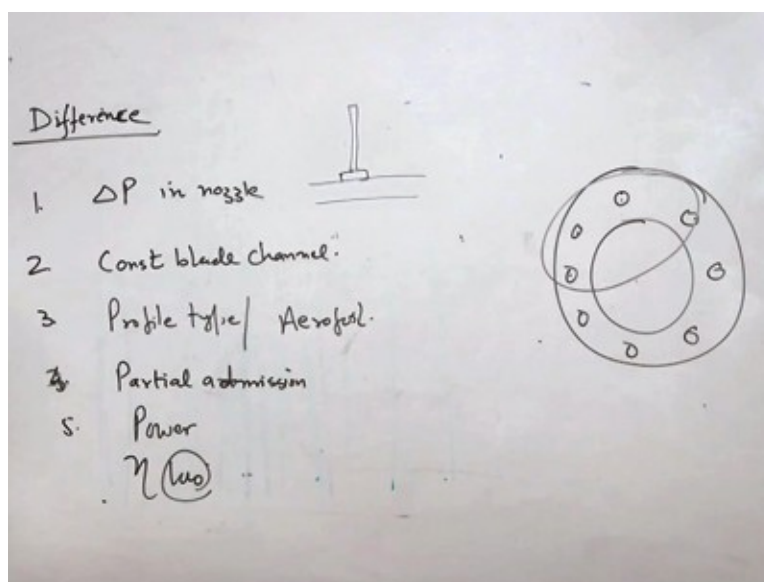 Difference
1. ΔP in nozzle
2 Const blade channel.
3 Profile type/ Aerofoil.
4 Partial admission
5. Power
η